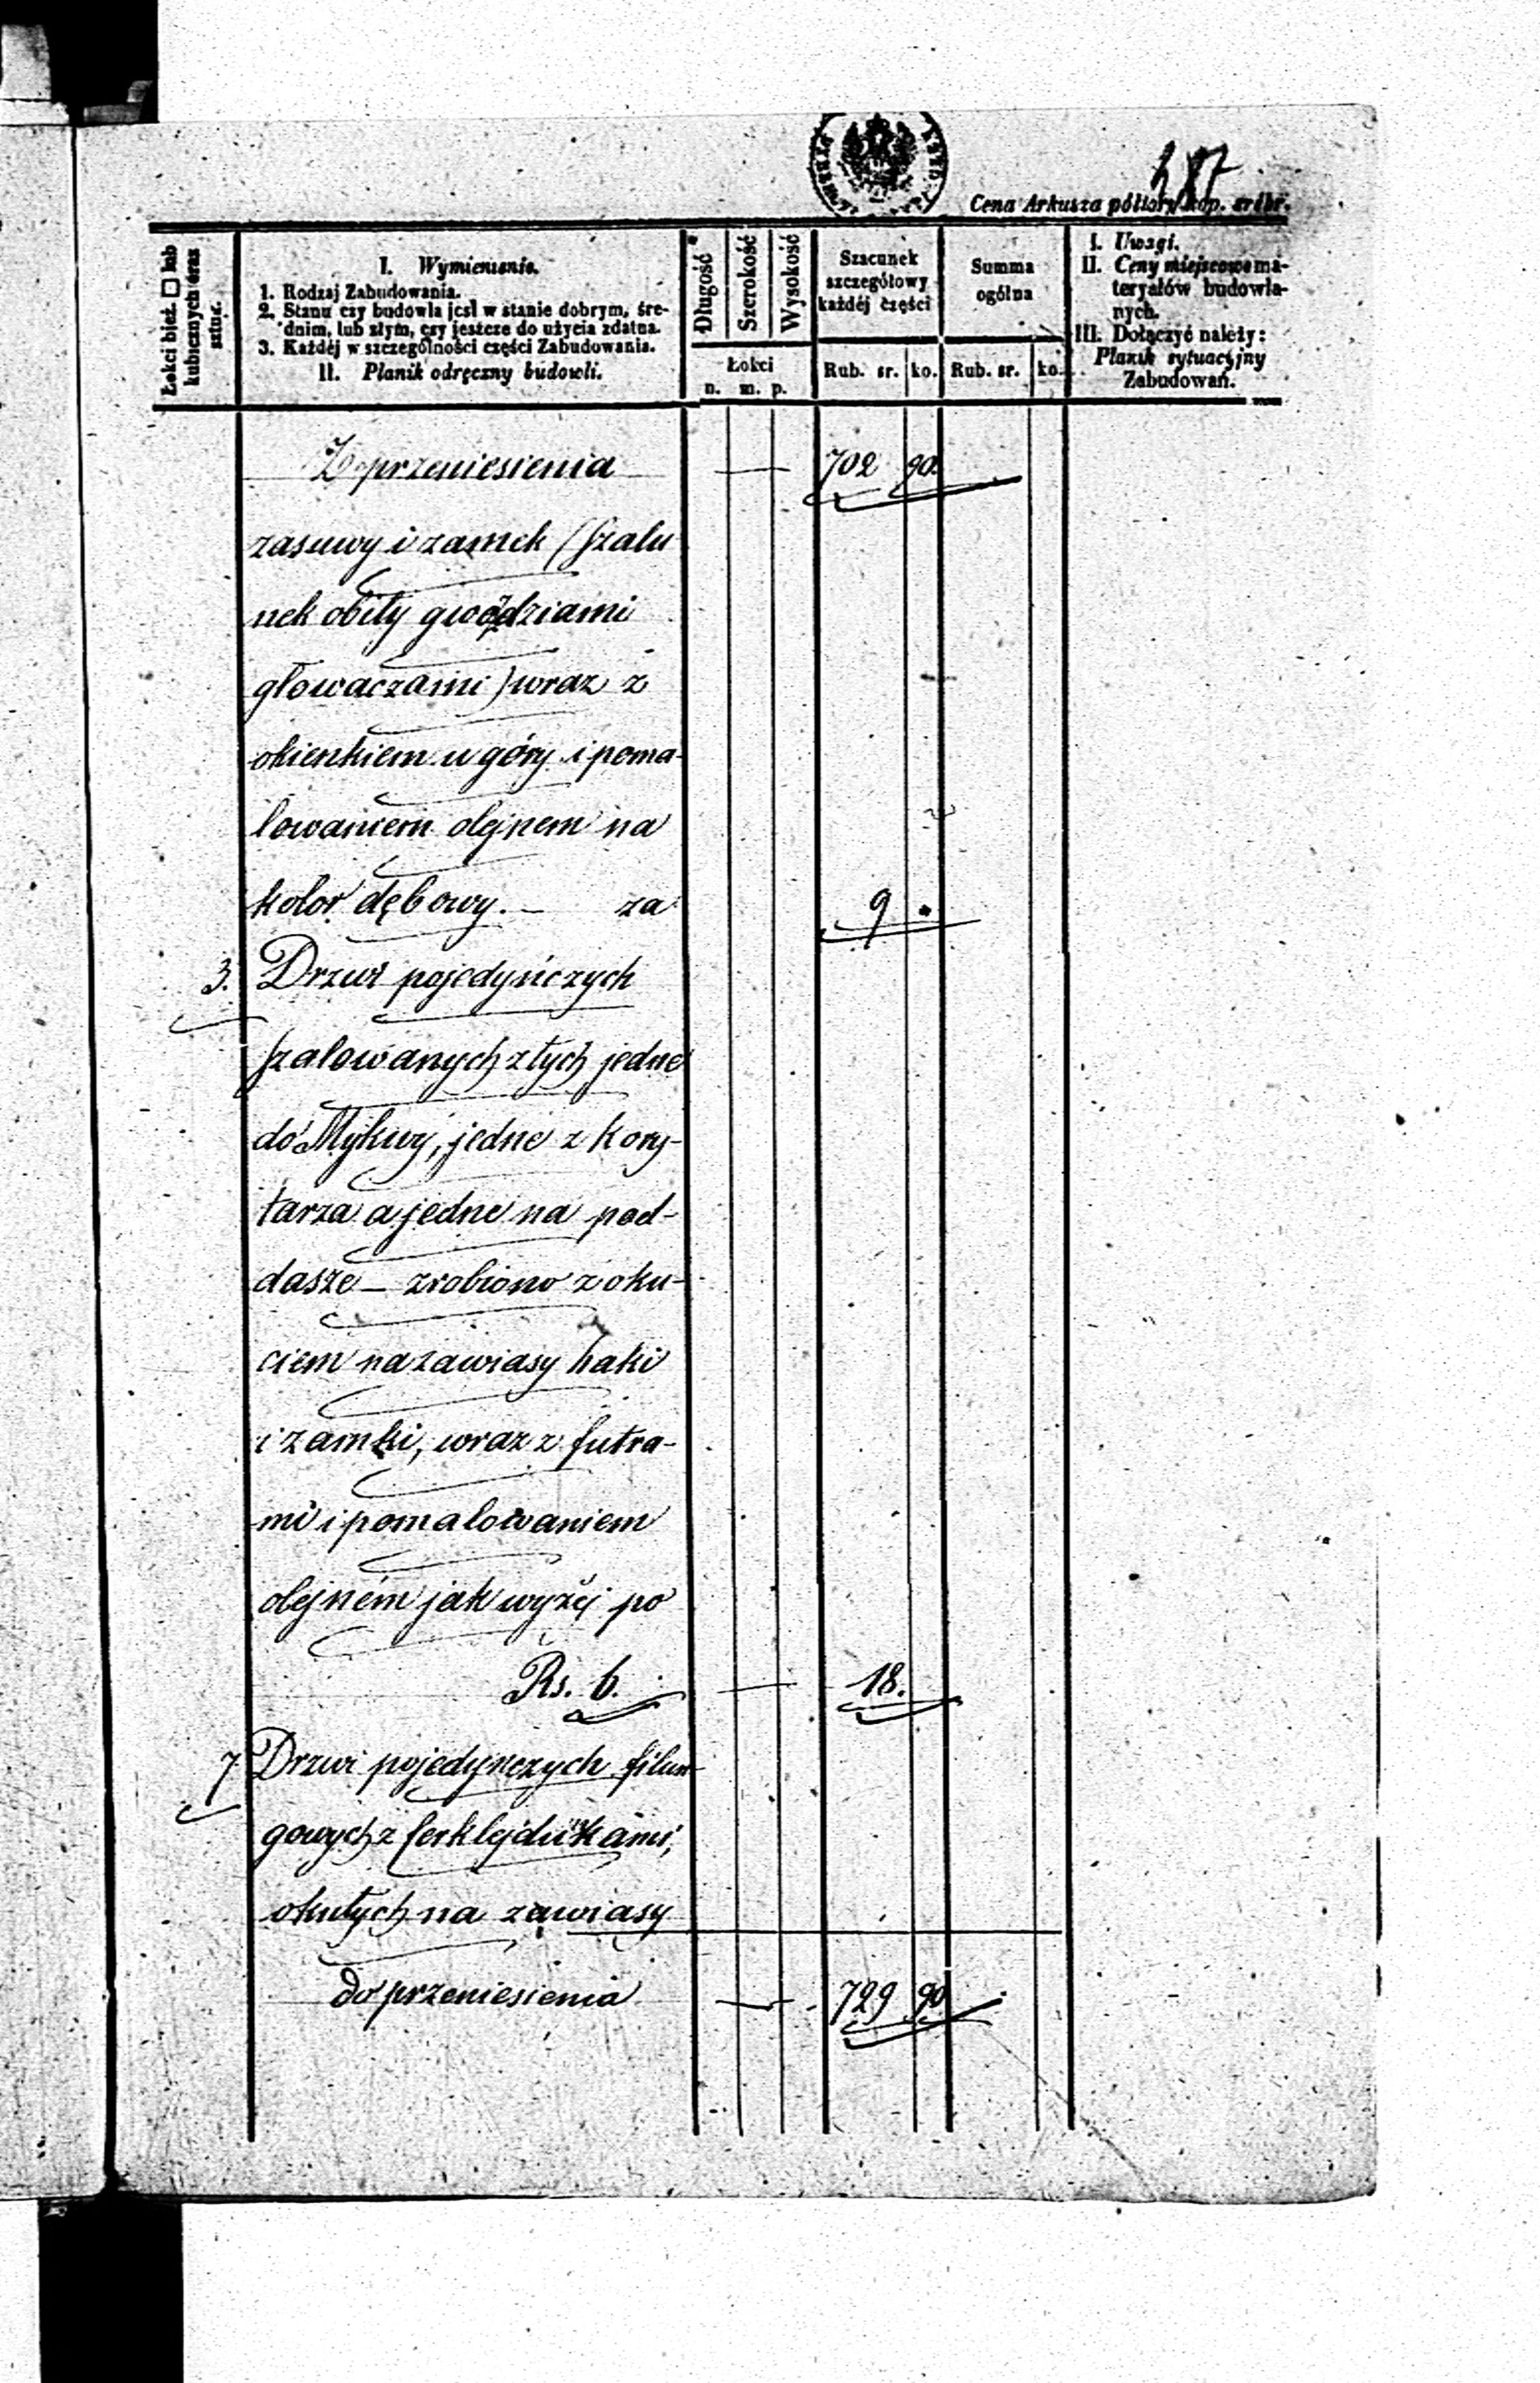 287
Cena Arkusza półtory kop. srébr.
Łokci bież. □ lub kubicznych oraz sztuć.
I. Wymienienie.
1. Rodzaj Zabudowania.
2. Stanu czy budowla jest w stanie dobrym, śre-
dnim, lub złym, czy jeszcze do użycia zdatna.
3. Każdéj w szczególności części Zabudowania.
II. Planik odręczny budowli.
Długość
Szerokość
Wysokość
Łokci
n. m. p.
Szacunek
szczegółowy
każdéj części
Rub. sr. ko.
Summa
ogólna
Rub. sr. ko.
I. Uwagi.
II. Ceny miejscowe ma-
teryałów budowla-
nych.
III. Dołączyć należy:
Planik sytuacyjny
Zabudowań.
Z przeniesienia — 702 90
zasuwy i zamek (szalu
nek obity gwoździami
głowaczami) wraz z
okienkiem u góry i poma-
lowaniem olejnem na
kolor dębowy. — za 9 .
3. Drzwi pojedyńczych
szalowanych złych jedne
do Mykwy, jedne z kory-
tarza a jedne na pod-
dasze — zrobiono z oku-
ciem na zawiasy haki
i zamki, wraz z futra-
mi i pomalowaniem
olejném jak wyżéj po
Rs. 6. — 18.
7 Drzwi pojedynczych filun-
gowych z ferklejdunkami,
okutych na zawiasy
do przeniesienia — 729 90